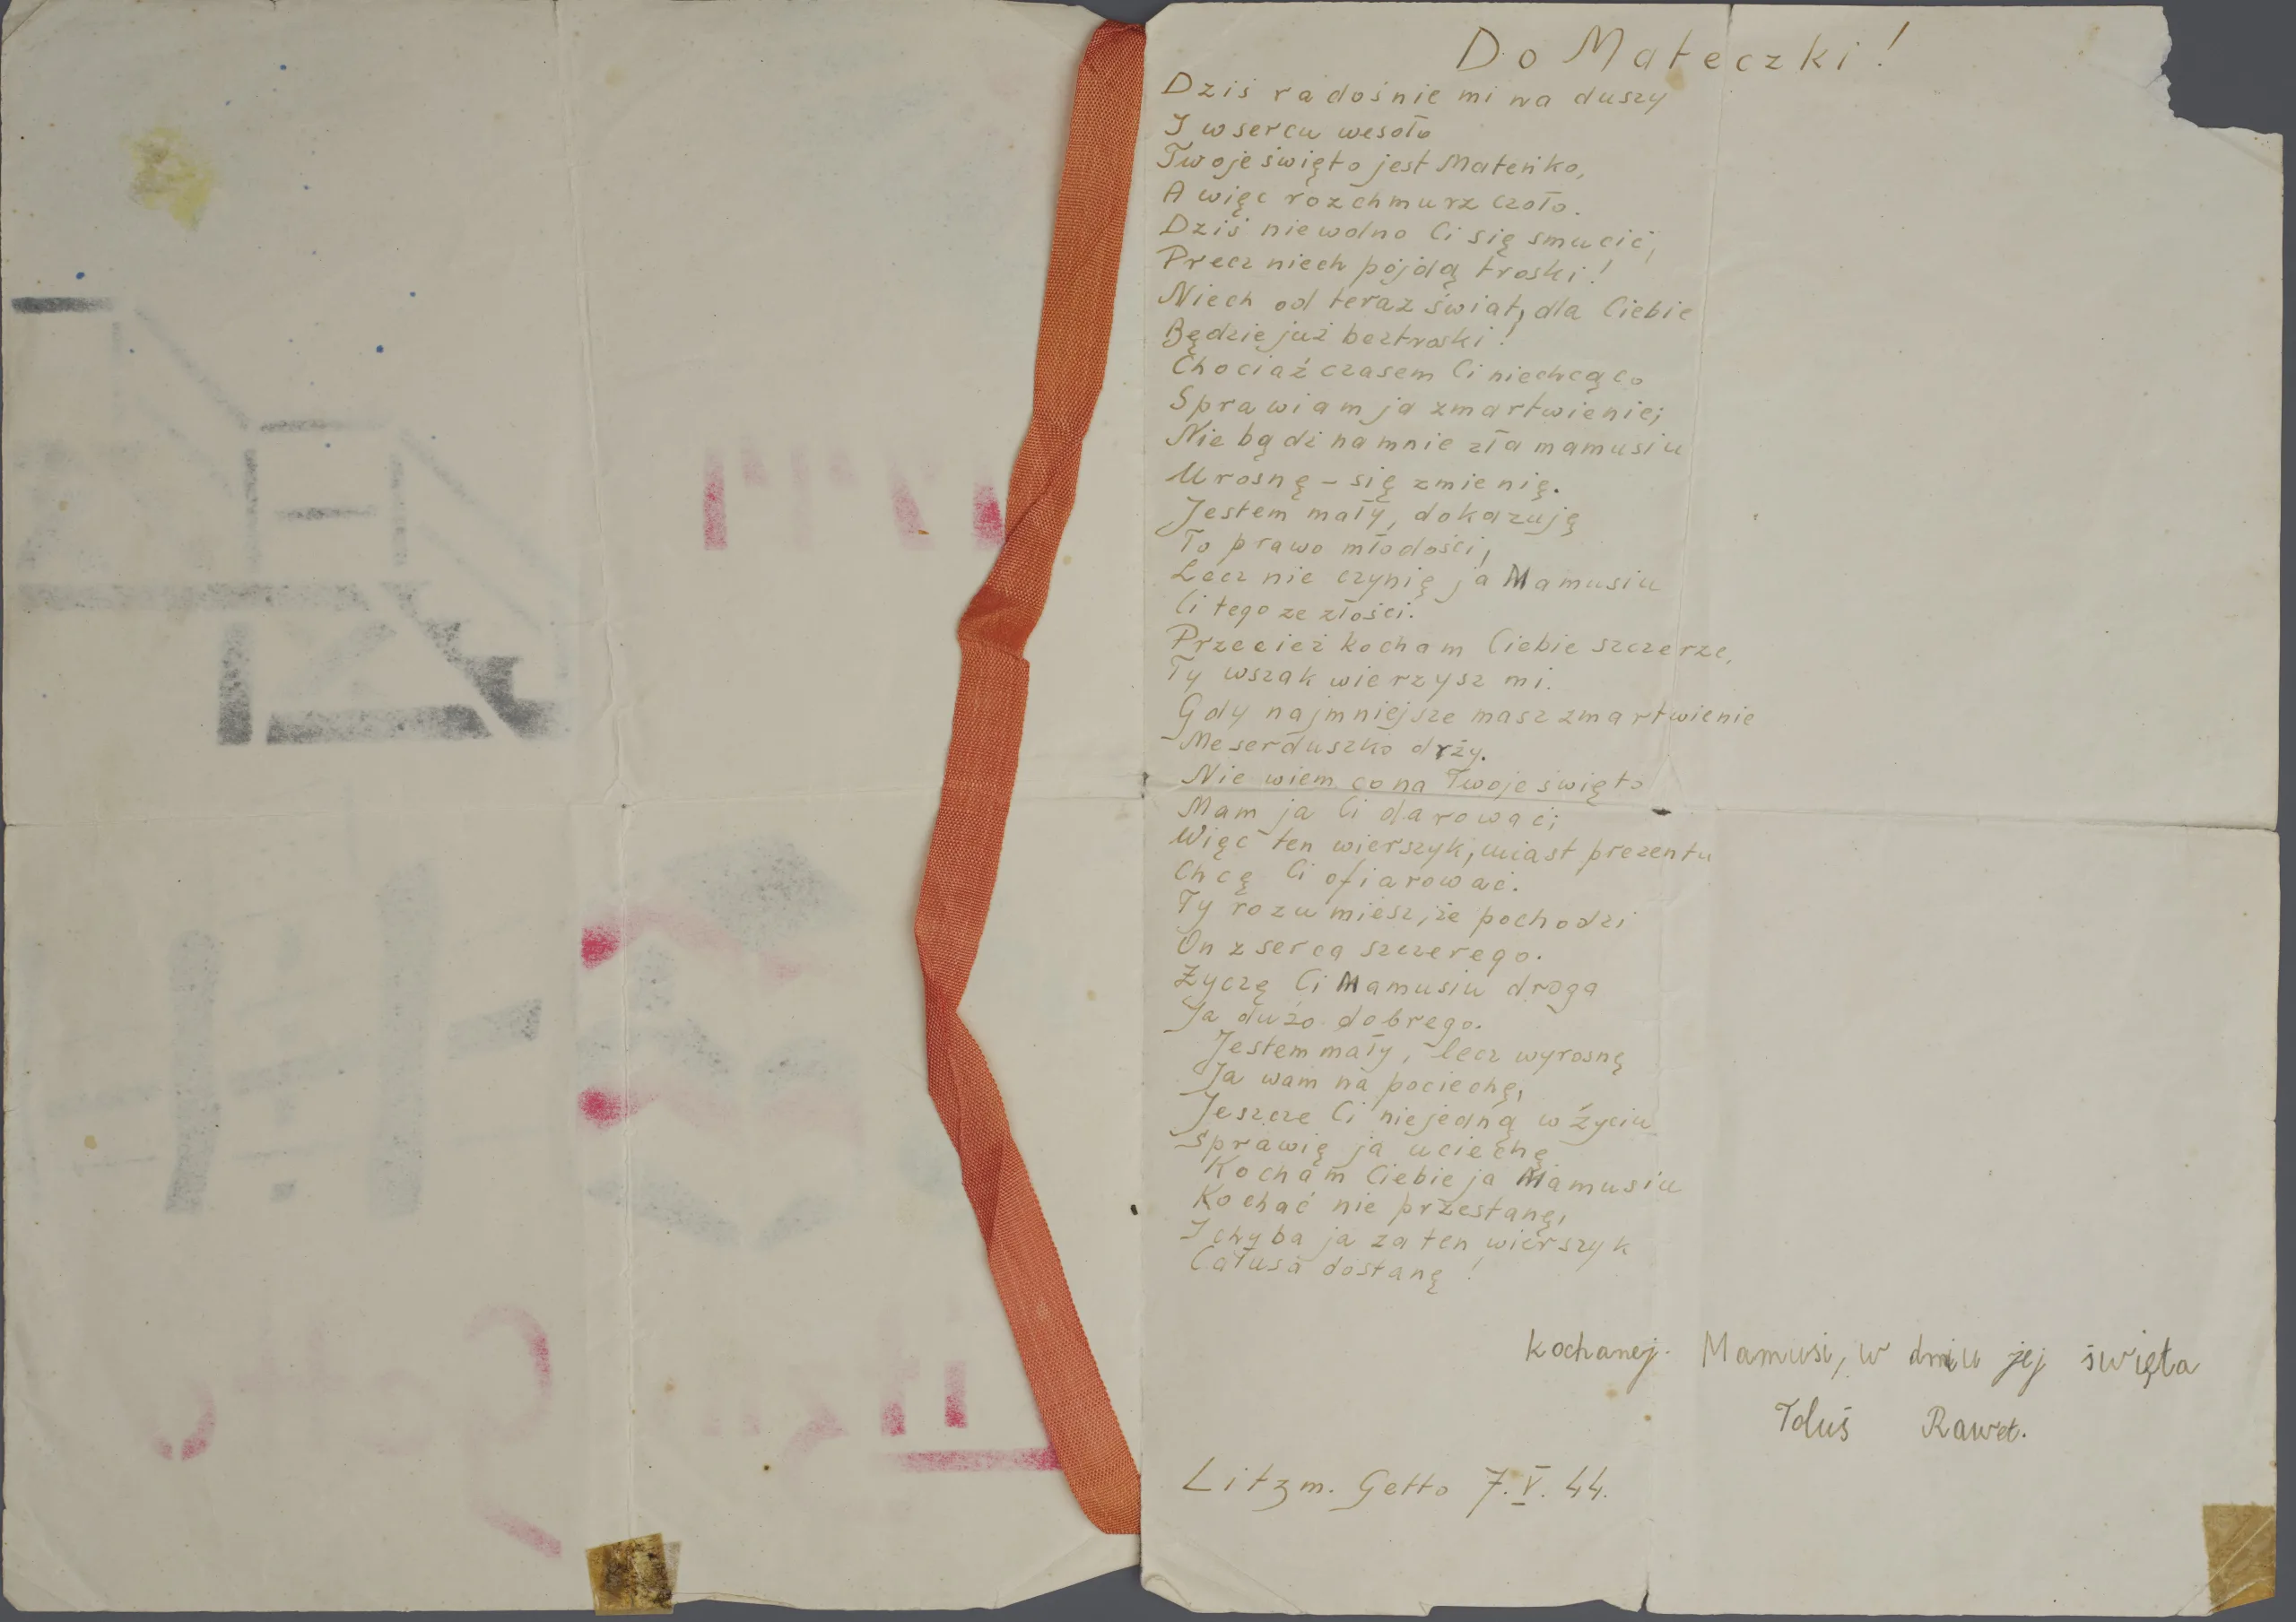 Do Mateczki!
Dziś radośnie mi na duszy
I w sercu wesoło
Twoje święto jest Mateńko,
A więc rozchmurz czoło.
Dziś niewolno Ci się smucić,
Precz niech pójdą troski!
Niech od teraz świat, dla Ciebie
Będzie już beztroski!
Chociaż czasem Ci niechcąco
Sprawiam ja zmartwienie;
Nie bądź na mnie zła mamusiu
Urosnę – się zmienię.
Jestem mały, dokazuję
To prawo młodości,
Lecz nie czynię ja Mamusiu
Ci tego ze złości.
Przecież kocham Ciebie szczerze,
Ty wszak wierzysz mi.
Gdy najmniejsze masz zmartwienie
Me serduszko drży.
Nie wiem co na Twoje święto
Mam ja Ci darować;
Więc ten wierszyk, miast prezentu
Chcę Ci ofiarować.
Ty rozumiesz, że pochodzi
On z serca szczerego.
Życzę Ci Mamusiu droga
Ja dużo dobrego.
Jestem mały, lecz wyrosnę
Ja wam na pociechę,
Jeszcze Ci niejedną w życiu
Sprawię ja uciechę
Kocham Ciebie ja Mamusiu
Kochać nie przestanę,
I chyba ja za ten wierszyk
Całusa dostanę!
kochanej Mamusi, w dniu jej święta
Tduś Rawet.
Litzm. Getto 7.V.44.